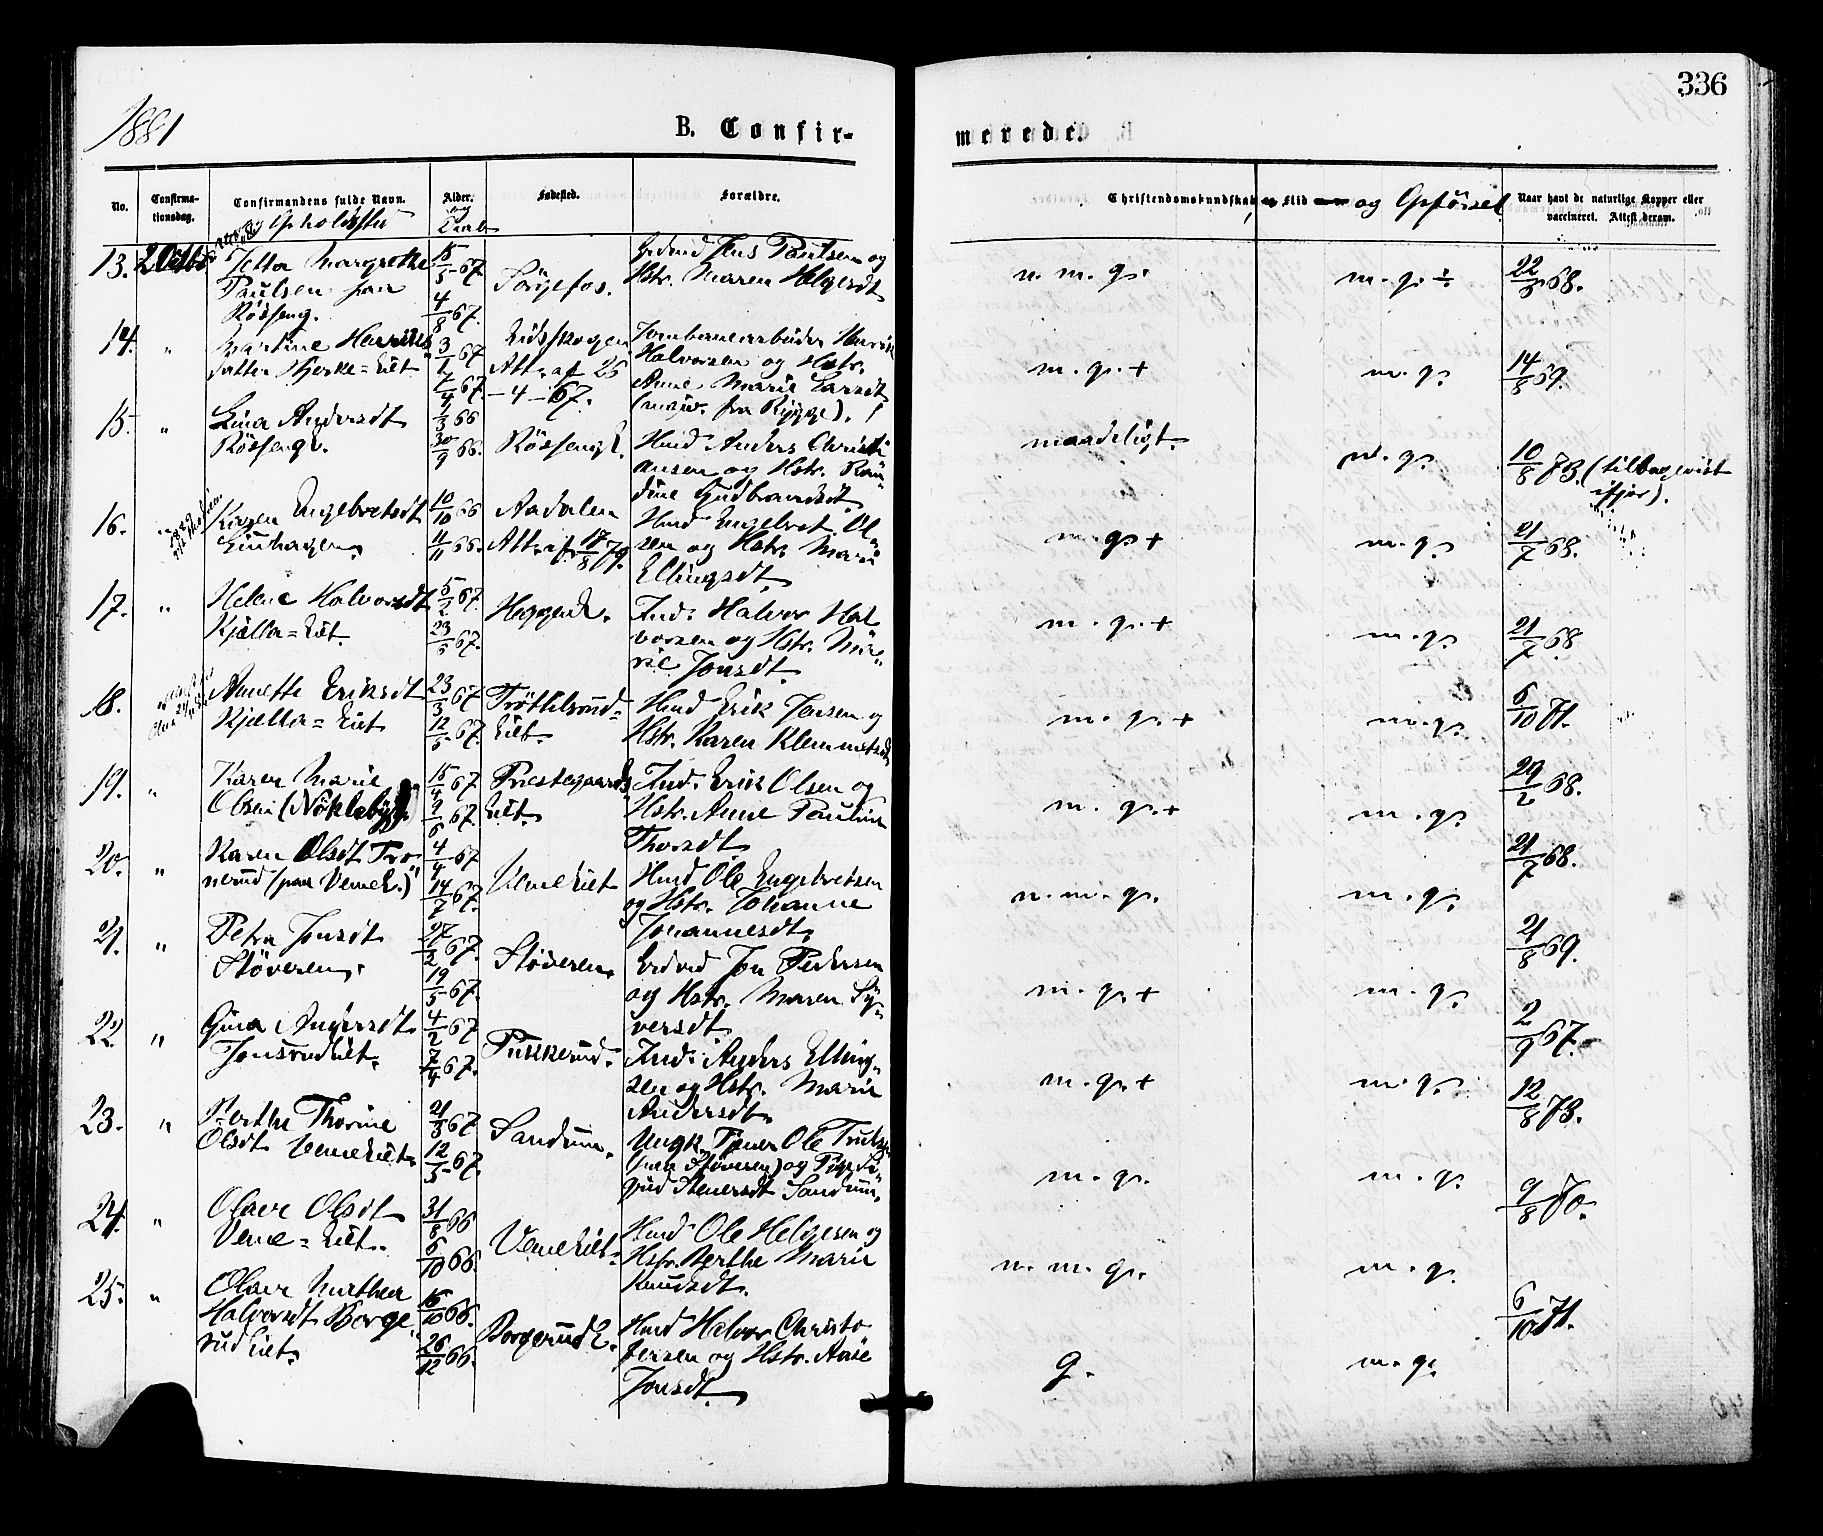 336
1881
B. Confir-
merede.
No.
Confirma-
tionsdag.
Confirmandens fulde Navn.
og Opholdsted
Alder.
og
Daab
Fødested.
Forældre.
Christendomskundskab og Flid og Opførsel
Naar havt de naturlige Kopper eller
vaccineret. Attest derom.
13. 2 Octbr
Margrethe
Paulsen paa
Røsseng.
15/5 67.
4/8 67.
Sørgefos.
Jens Paulsen og
Hstr. Maren Helgesdt
n. m. g.
m. g. ÷
22/ 68.
14. "
Martine Henriks
datter Hjerke=Eiet
3/ 67
7/4 67.
Eidsskogen
Att. af 26
- 4 - 67.
Jernbanearbeider Henrik
Halvorsen og Hstr.
Anne Marie Larsdt
(midv. fra Rygge).
m. g. +
m. g.
14/8 69.
15. "
Lina Andersdt
Røssenge.
1/3 66
30/9 66.
Røssenge.
Hmd Anders Christi
ansen og Hstr. Ran
dine Gudbrandsdt.
maadeligt.
m. g.
10/8 73. (tilbagevist
ifjor).
16. "
Karen Engebretsdt
Linhagen.
10/10 66
11/11 66.
Aadalen
Att. af 17/8 79.
Hmd Engebret Ol
sen og Hstr. Mari
Ellingsdt.
m. g. +
m. g.
21/7 68.
17. "
Helene Halvorsdt
Kjælla=Eiet.
5/2 67.
23/ 67.
Heggen.
Ind. Halvor Hal
vorsen og Hstr. Ma
rie Jonsdt.
m. g. +
m. g.
21/7 68
18.
Annette Eriksdt
Kjælla=Eiet
23/3 67
12/5 67.
Trøttelsrud=
Eiet.
Hmd Erik Jonsen og
Hstr. Karen Klemmetsdt
m. g. +
m. g.
6/10 71.
19. "
Karen Marie
Olsen (Nøkleby)
15/4 67
9/6 67.
Præstegaards
Eiet.
Ind. Erik Olsen og
Hstr. Anne Pauline
Thorsdt
m. g. +
m. g.
29/2 68.
20. "
Karen Olsdt Tro
nerud (paa Veme E.)
4/4 67
14/7 67.
Veme Eiet
Hmd Ole Engebretsen
og Hstr. Johanne
Johannesdt.
n. m. g.
m. g.
21/7 68.
21. "
Petra Jonsdt
Støveren.
27/2 67.
19/5 67.
Støveren.
Jon Pedersen
og Hstr. Maren Sy-
versdt.
m. g. +
m. g.
21/8 69.
22. "
Gina Andersdt.
Jonsrudeiet.
4/2 67
7/4 67.
Pukkerud.
Ind. Anders Elling-
sen og Hstr. Marie
Andersdt.
m. g. +
m. g.
2/9 67.
23. "
Berthe Thorine
Olsdt Vemeeiet.
21/3 67
12/5 67.
Sandum.
Ungk. Tjener Ole Truls
(paa Støveren) og Pige Si
grid Stenersdt Sandum.
m. g.
m. g.
12/8 73.
24. "
Olava Olsdt
Veme=Eiet.
31/8 66
6/10 66
Veme Eiet.
Hmd Ole Helgesen og
Hstr. Berthe Marie
Knudsdt.
n. m. g.
m. g.
9/8 70.
25. "
Olava Mathea
Halvorsdt Borge
rudeiet.
15/10 66.
26/12 66.
Borgerud E.
Hmd Halvor Christo
fersen og Hstr. Aase
Jonsdt.
g.
m. g.
6/10 71.